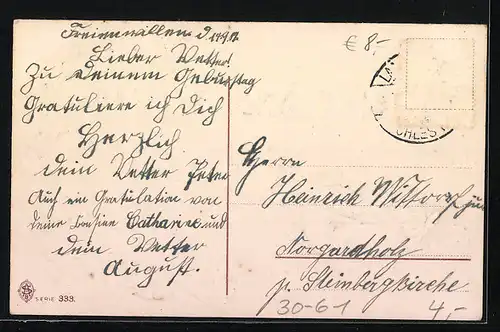 Freienwillen d
Lieber Vetter!
Zu deinem Geburstag
Gratuliere ich Dich
Herzlich
dein Vetter Peter
Auch ein Gratulation von
deine Cousine und
dein Vetter
August.
SERIE 333.
€ 8,-
CHLES
Herrn
Heinrich Wittorf jun
Norgardholz
p. Steinbergkirche
30-61
4,-